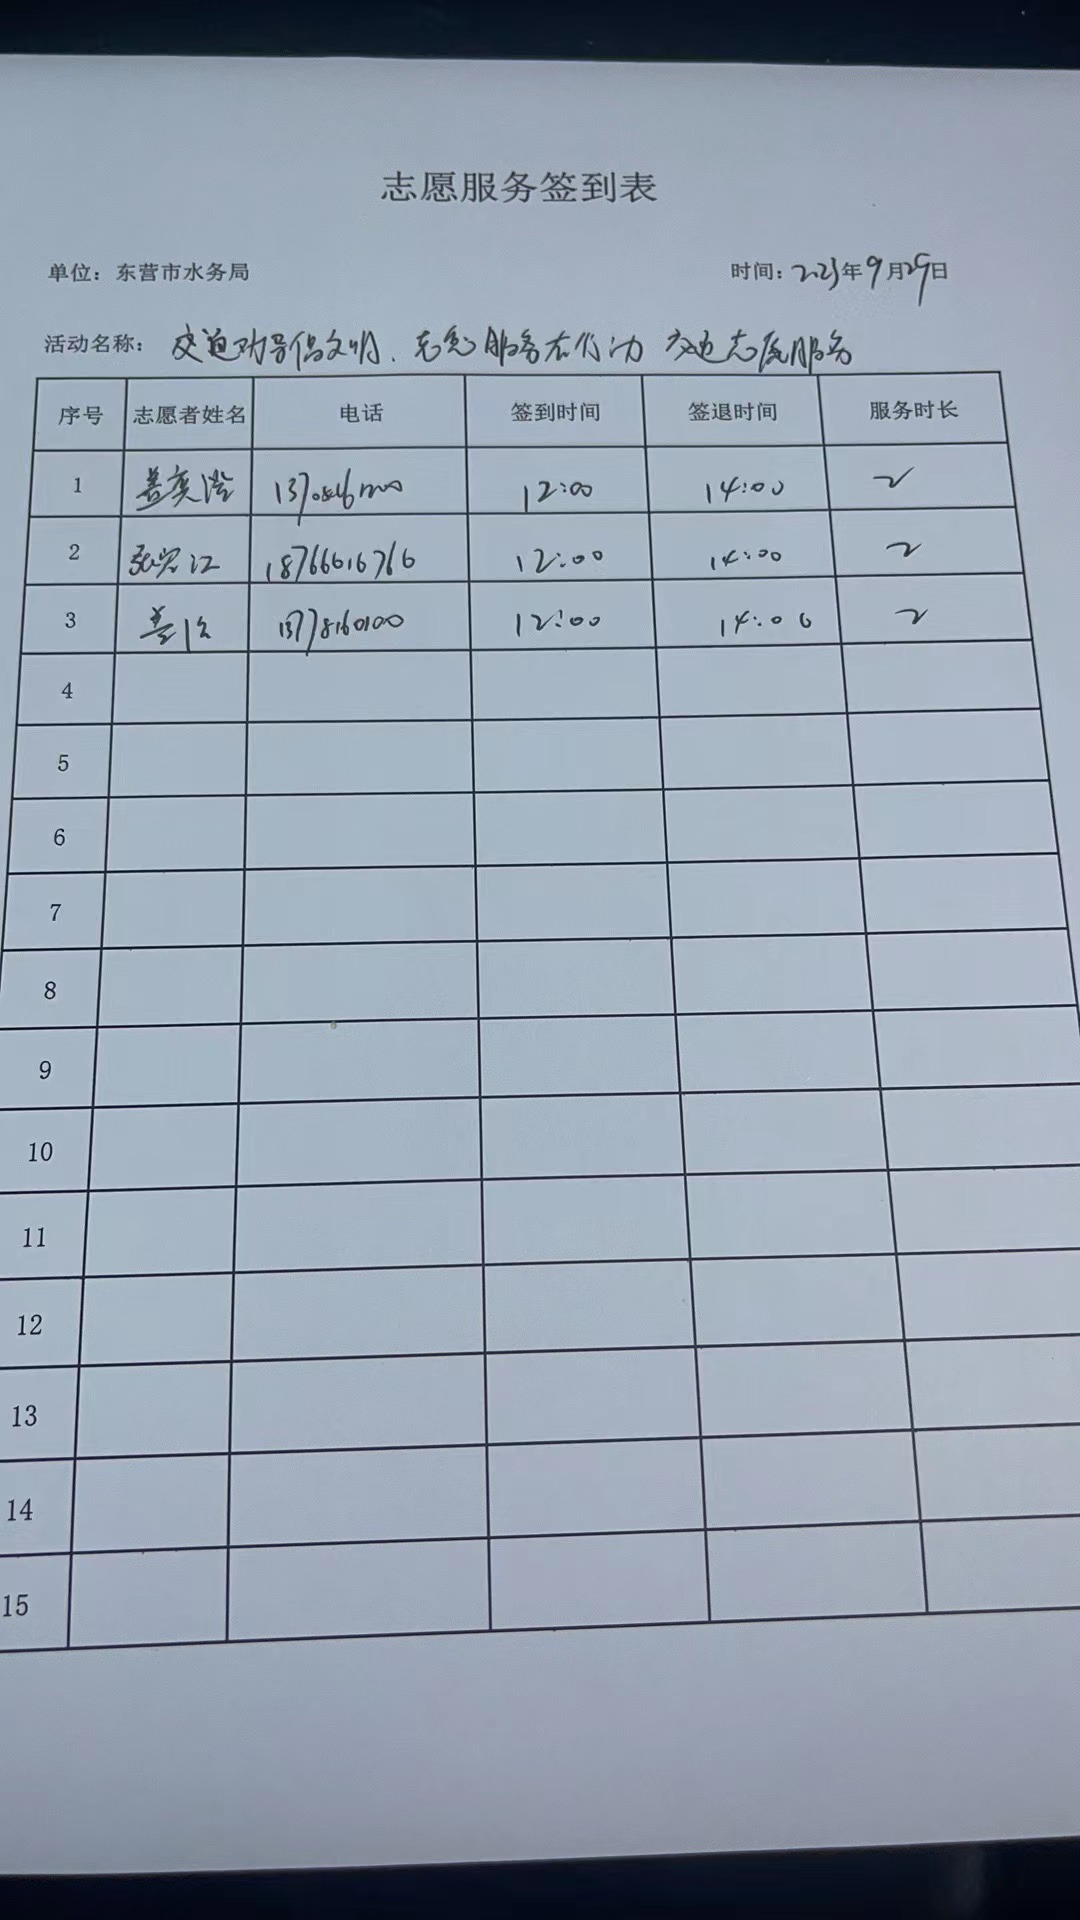 志愿服务签到表
单位：东营市水务局 时间：2023年9月29日
活动名称：交通劝导倡文明、志愿服务在行动 交通志愿服务
序号 志愿者姓名 电话 签到时间 签退时间 服务时长
1 盖奕澄 12:00 14:00 2
2 张兴江 18766616766 12:00 14:00 2
3 盖 12:00 14:00 2
4
5
6
7
8
9
10
11
12
13
14
15